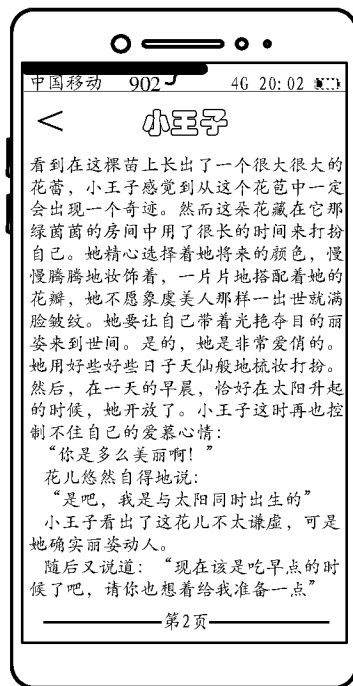 中国移动 902 4G 20:02
<
小王子
看到在这棵苗上长出了一个很大很大的
花蕾，小王子感觉到从这个花苞中一定
会出现一个奇迹。然而这朵花藏在它那
绿茵茵的房间中用了很长的时间来打扮
自己。她精心选择着她将来的颜色，慢
慢腾腾地妆饰着，一片片地搭配着她的
花瓣，她不愿象虞美人那样一出世就满
脸皱纹。她要让自己带着光艳夺目的丽
姿来到世间。是的，她是非常爱俏的。
她用好些好些日子天仙般地梳妆打扮。
然后，在一天的早晨，恰好在太阳升起
的时候，她开放了。小王子这时再也控
制不住自己的爱慕心情：
“你是多么美丽啊！”
花儿悠然自得地说：
“是吧，我是与太阳同时出生的”
小王子看出了这花儿不太谦虚，可是
她确实丽姿动人。
随后又说道：“现在该是吃早点的时
候了吧，请你也想着给我准备一点”
第2页